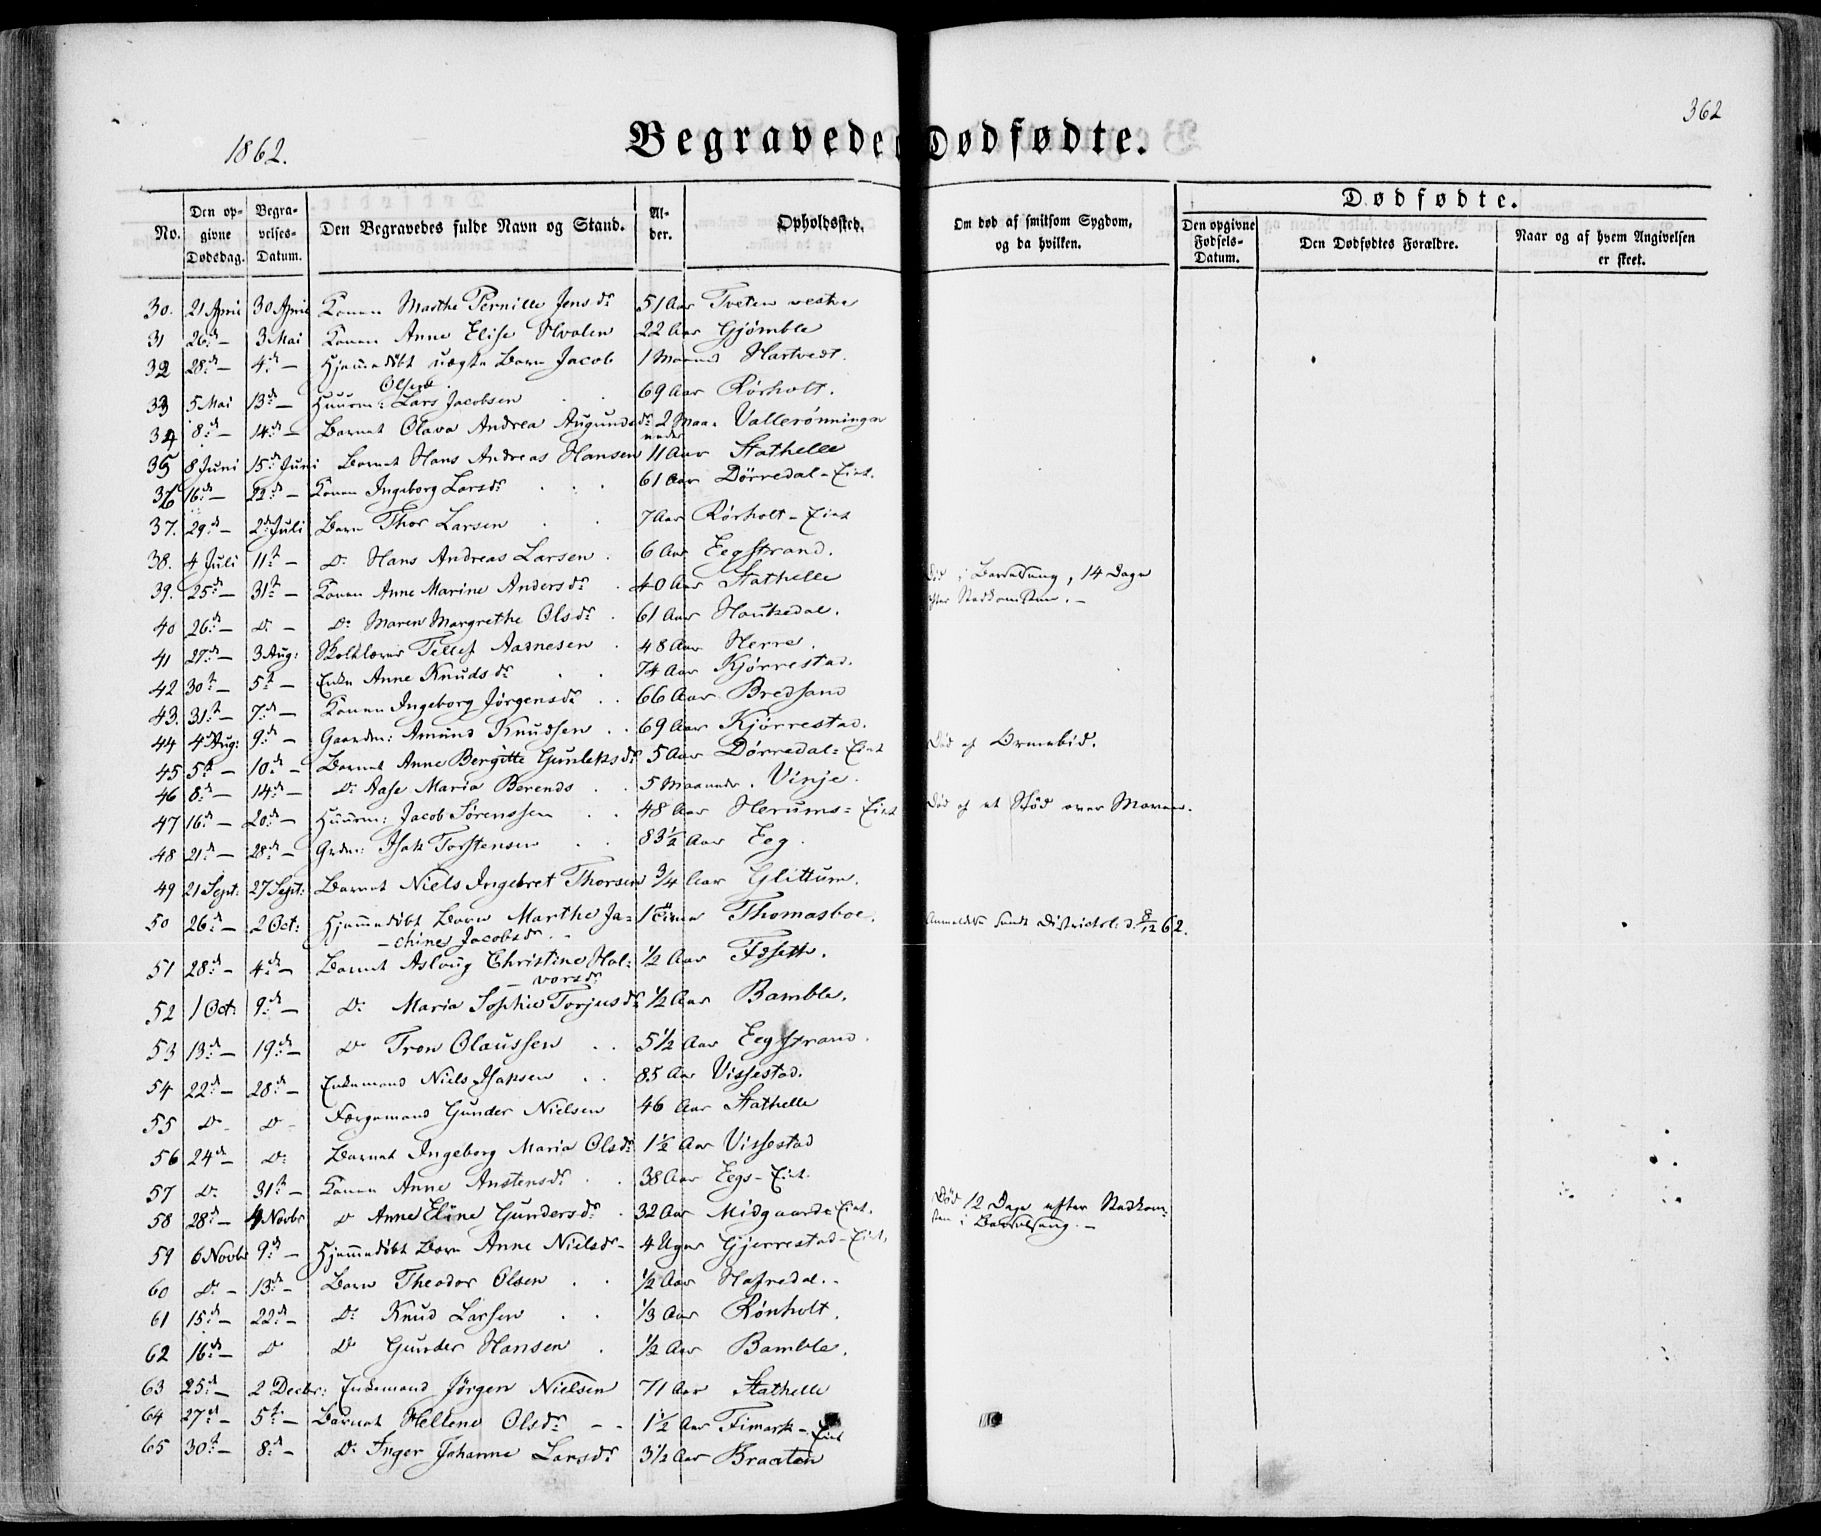 362
1862.
Begravede Dødfødte.
No. Den opgivne Dødsdag. Begravelses-Datum. Den Begravedes fulde Navn og Stand. Alder. Opholdssted. Om død af smitsom Sygdom, og da hvilken. Dødfødte. Den opgivne Fødsels-Datum. Den Dødfødtes Forældre. Naar og af hvem Angivelsen er skeet.
30. 21 April 30 April Konen Marthe Pernille Jensdr 51 Aar Tveten vestre
31 26de – 3 Mai Konen Anne Elise Hvalen 22 Aar Gjømble
32 28de – 4de – Hjemmedøbt uægte Barn Jacob Olsen. 1 Maaned Hartvedt.
33 5 Mai 13de – Huusm: Lars Jacobsen 69 Aar Rørholt.
34 8de – 14de – Barnet Olava Andrea Augundsdr 2 Maaneder Vallerønningen
35 8 Juni 15de Juni Barnet Hans Andreas Hansen 11 Aar Stathelle
36 16de – 22de – Konen Ingeborg Larsdr 61 Aar Dørredal-Eiet.
37. 29de – 2de Juli Barn Thor Larsen 7 Aar Rørholt-Eiet
38. 4 Juli 11te – Do Hans Andreas Larsen. 6 Aar Eegstrand.
39. 25de – 31te – Konen Anne Marine Andersdr. 40 Aar Stathelle Død i Barselseng, 14 Dage efter Nedkomsten. –
40 26de – Do – Do Maren Margrethe Olsdr. 61 Aar Haukedal.
41 27de – 3 Aug: Skolelærer Tellef Aasnesen. 48 Aar Herre.
42 30te – 5te – Enke Anne Knudsdr 74 Aar Kjørrestad.
43. 31te – 7de – Konen Ingeborg Jørgensdr 66 Aar Bredsand
44 4 Aug: 9de – Gaardm: Amund Knudsen 69 Aar Kjørrestad.
45 5te – 10de – Barnet Anne Bergitte Gunleksdr 5 Aar Dørredal-Eiet Død af Ormebid.
46 8de – 14de – Do Aase Maria Berends 5 Maaneder. Vinje.
47 16de – 20de – Huusm: Jacob Sørenssen 48 Aar Herums-Eiet Død af et Stød over Maven.
48 21de – 28de – Grdm: Isak Torstensen 83½ Aar Eeg.
49 21 Sept: 27 Sept: Barnet Niels Ingebret Thorsen ¾ Aar Glittum.
50 26de – 2 Oct: Hjemmedøbt Barn Marthe Jachine Jacobsdr. 1 Time Thomasboe. Anmeldelse sendt Districtsl: d. 8/12 62.
51 28de – 4de – Barnet Aslaug Christine Halvorsdr ½ Aar Fosette.
52 1 Oct: 9de – Do Maria Sophie Torjusdr ½ Aar Bamble.
53 13de – 19de – Do Tron Olaussen 5½ Aar Eegstrand.
54 22de – 28de – Enkemand Niels Isaksen 85 Aar Vissestad.
55 Do – Do – Færgemand Gunder Nielsen 46 Aar Stathelle
56 24de – Do Barnet Ingeborg Maria Olsdr 1½ Aar Vissestad
57 Do 31te – Konen Anne Anstensdr 38 Aar Eegs-Eiet.
58 28de – 4 Novbr Do Anne Eline Gundersdr. 32 Aar Midgaards Eiet. Død 12 Dage efter Nedkomsten i Barselseng. –
59 6 Novbr 9de – Hjemmedøbt Barn Anne Nielsdr – 4 Uger Gjerrestad-Eiet.
60 Do – 13de – Barn Theodor Olsen ½ Aar Hafredal. –
61 15de – 22de – Do Knud Larsen ⅓ Aar Rønholt.
62 16de – Do Do Gunder Hansen ½ Aar Bamble.
63 25de – 2 Decbr: Enkemand Jørgen Nielsen 71 Aar Stathelle
64 27de – 5te – Barnet Hellene Olsdr – – 1½ Aar Fimark-Eiet
65 30te – 8de – Do Inger Johanne Larsdr 3½ Aar Braaten